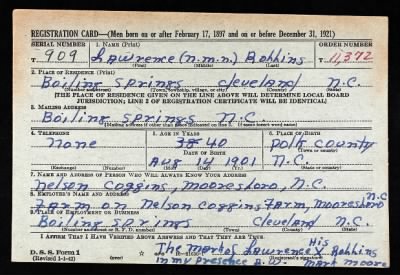 REGISTRATION CARD—(Men born on or after February 17, 1897 and on or before December 31, 1921)
SERIAL NUMBER 1. NAME (Print) ORDER NUMBER
T 909 Lawrence (n.m.n.) Robbins T 11,372
(First) (Middle) (Last)
2. PLACE OF RESIDENCE (Print)
Boiling Springs Cleveland N.C.
(Number and street) (Town, township, village, or city) (County) (State)
[THE PLACE OF RESIDENCE GIVEN ON THE LINE ABOVE WILL DETERMINE LOCAL BOARD
JURISDICTION; LINE 2 OF REGISTRATION CERTIFICATE WILL BE IDENTICAL]
3. MAILING ADDRESS
Boiling Springs N.C.
[Mailing address if other than place indicated on line 2. If same insert word same]
4. TELEPHONE 5. AGE IN YEARS 6. PLACE OF BIRTH
none 40 Polk County
DATE OF BIRTH (Town or county)
Aug 14 1901 N.C.
(Exchange) (Number) (Mo.) (Day) (Yr.) (State or country)
7. NAME AND ADDRESS OF PERSON WHO WILL ALWAYS KNOW YOUR ADDRESS
Nelson Coggins, Mooresboro, N.C.
8. EMPLOYER'S NAME AND ADDRESS
Farm on Nelson Coggins Farm, Mooresboro N.C.
9. PLACE OF EMPLOYMENT OR BUSINESS
Boiling Springs Cleveland N.C.
(Number and street or R. F. D. number) (Town) (County) (State)
I AFFIRM THAT I HAVE VERIFIED ABOVE ANSWERS AND THAT THEY ARE TRUE.
D. S. S. Form 1
(Revised 1-1-42)
The mark of Lawrence His X Robbins
in my presence D.W. Mark Moore